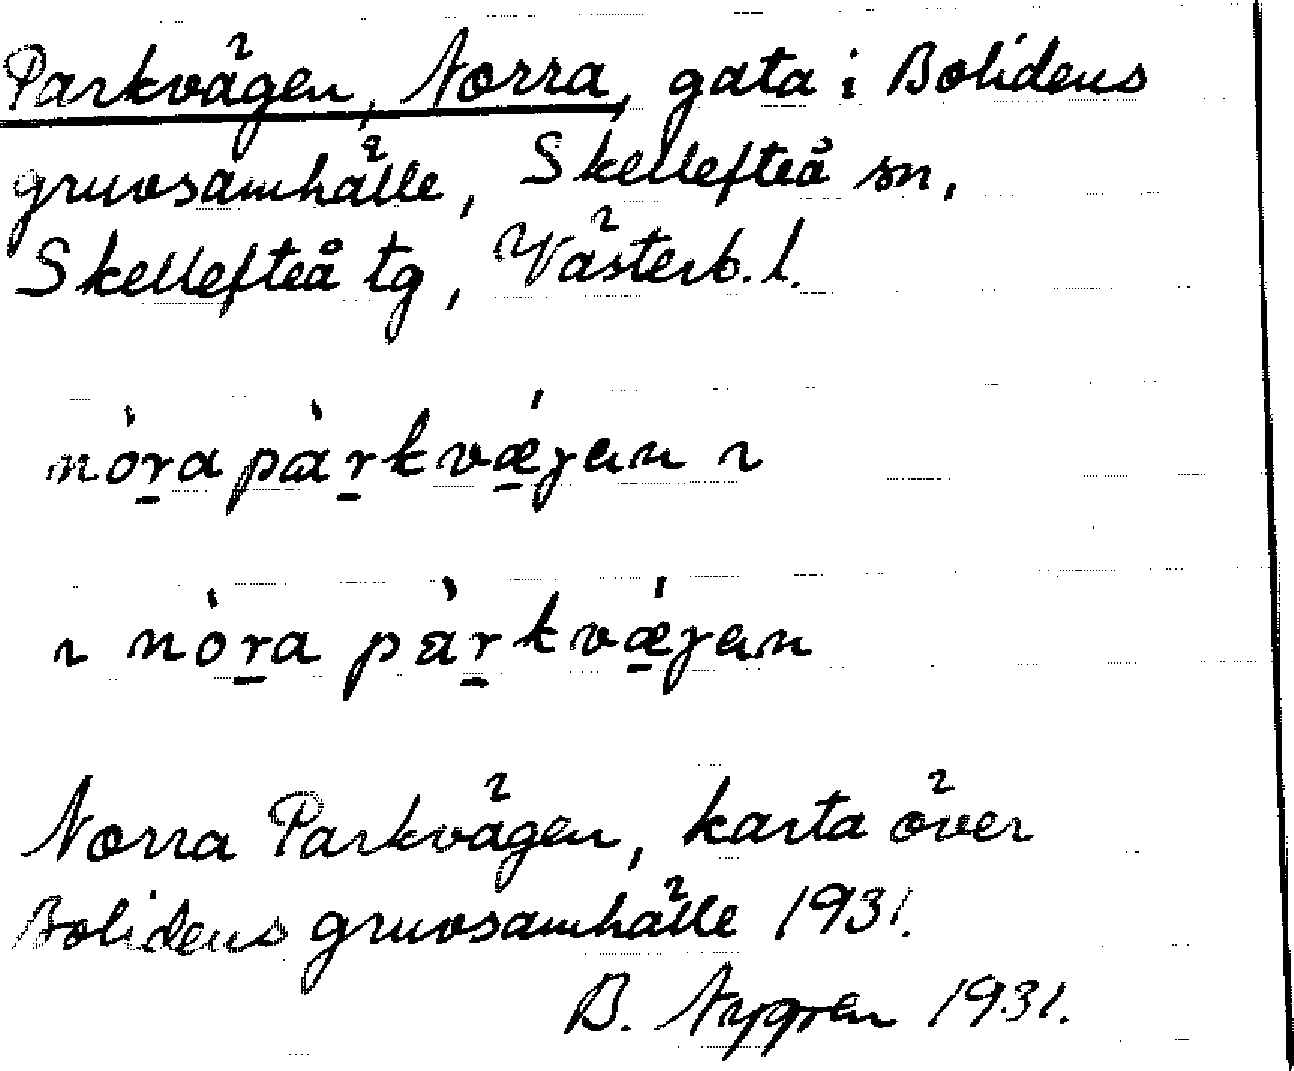 Parkvägen, Norra, gata i Bolidens
gruvsamhälle, Skellefteå sn,
Skellefteå tg, Västerb. l.
nòra pàrkvǽjen ɿ
ɿ nòra pàrkvǽjen
Norra Parkvägen, karta över
Bolidens gruvsamhälle 1931.
B. Nygren 1931.